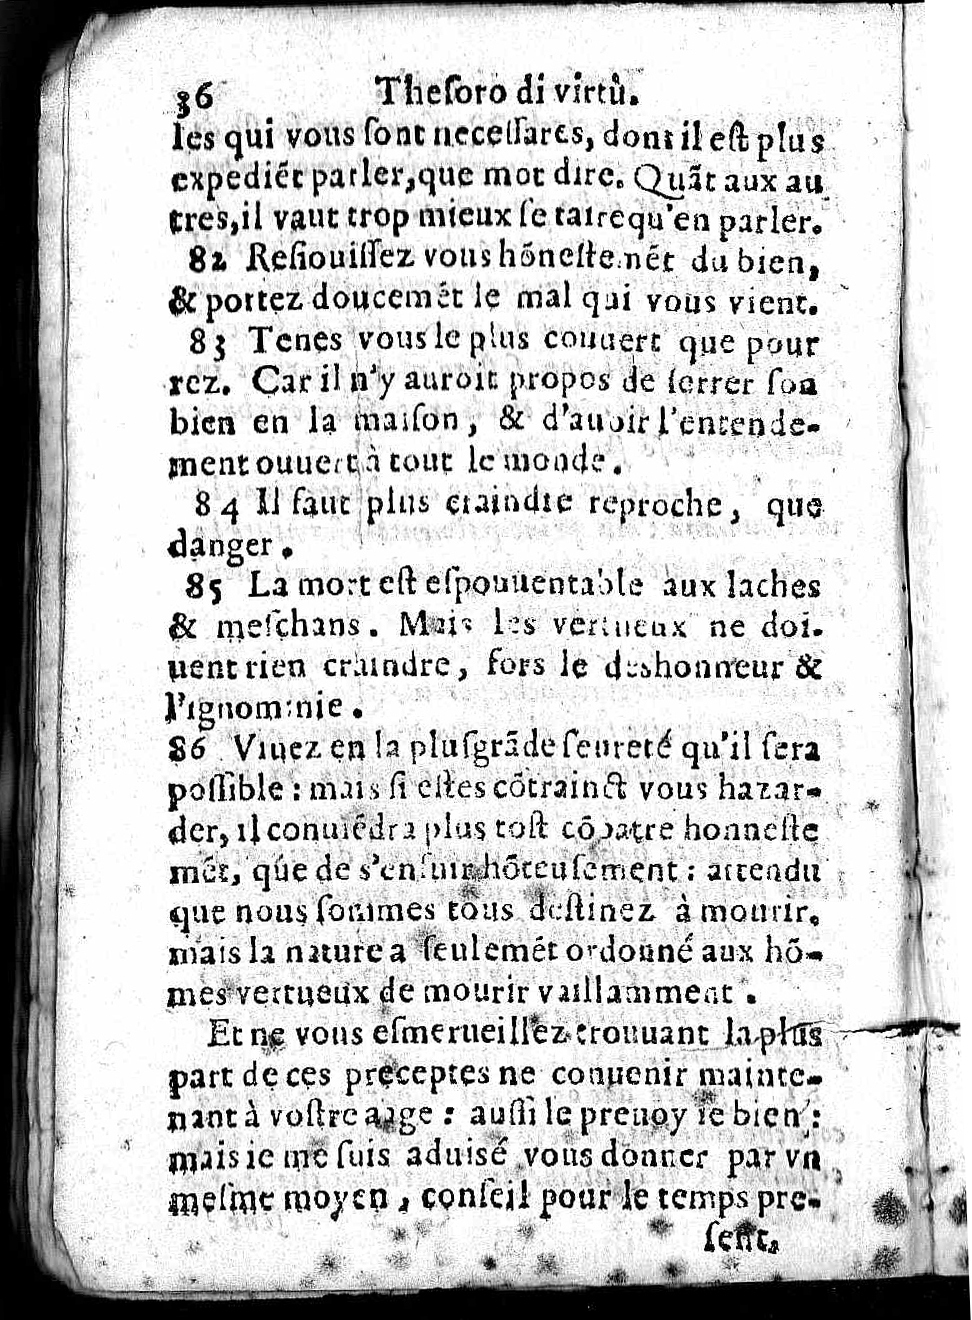 36 Theſoro di virtù.
les qui vous ſont neceſſares, dont il eſt plus
expediẽt parler, que mot dire. Quãt aux au
tres, il vaut trop mieux ſe taire qu'en parler.
82 Reſiouiſſez vous hõneſtemẽt du bien,
& portez doucemẽt le mal qui vous vient.
83 Tenes vous le plus couuert que pour
rez. Car il n'y auroit propos de ſerrer ſon
bien en la maiſon, & d'auoir l'entende-
ment ouuert à tout le monde.
84 Il faut plus craindre reproche, que
danger.
85 La mort eſt eſpouuentable aux laches
& meſchans. Mais les vertueux ne doi.
uent rien craindre, fors le deshonneur &
l'ignominie.
86 Viuez en la pluſgrãde ſeureté qu'il ſera
poſſible : mais ſi eſtes cõtrainct vous hazar-
der, il conuiẽdra plus toſt cõbatre honneſte
mẽt, que de s'enfuir hõteuſement : attendu
que nous ſommes tous deſtinez à mourir.
mais la nature a ſeulemẽt ordonné aux hõ-
mes vertueux de mourir vaillamment.
Et ne vous eſmerueillez trouuant la plus
part de ces preceptes ne conuenir mainte-
nant à voſtre aage : auſſi le preuoy ie bien :
mais ie me ſuis aduisé vous donner par vn
meſme moyen, conſeil pour le temps pre-
ſent,